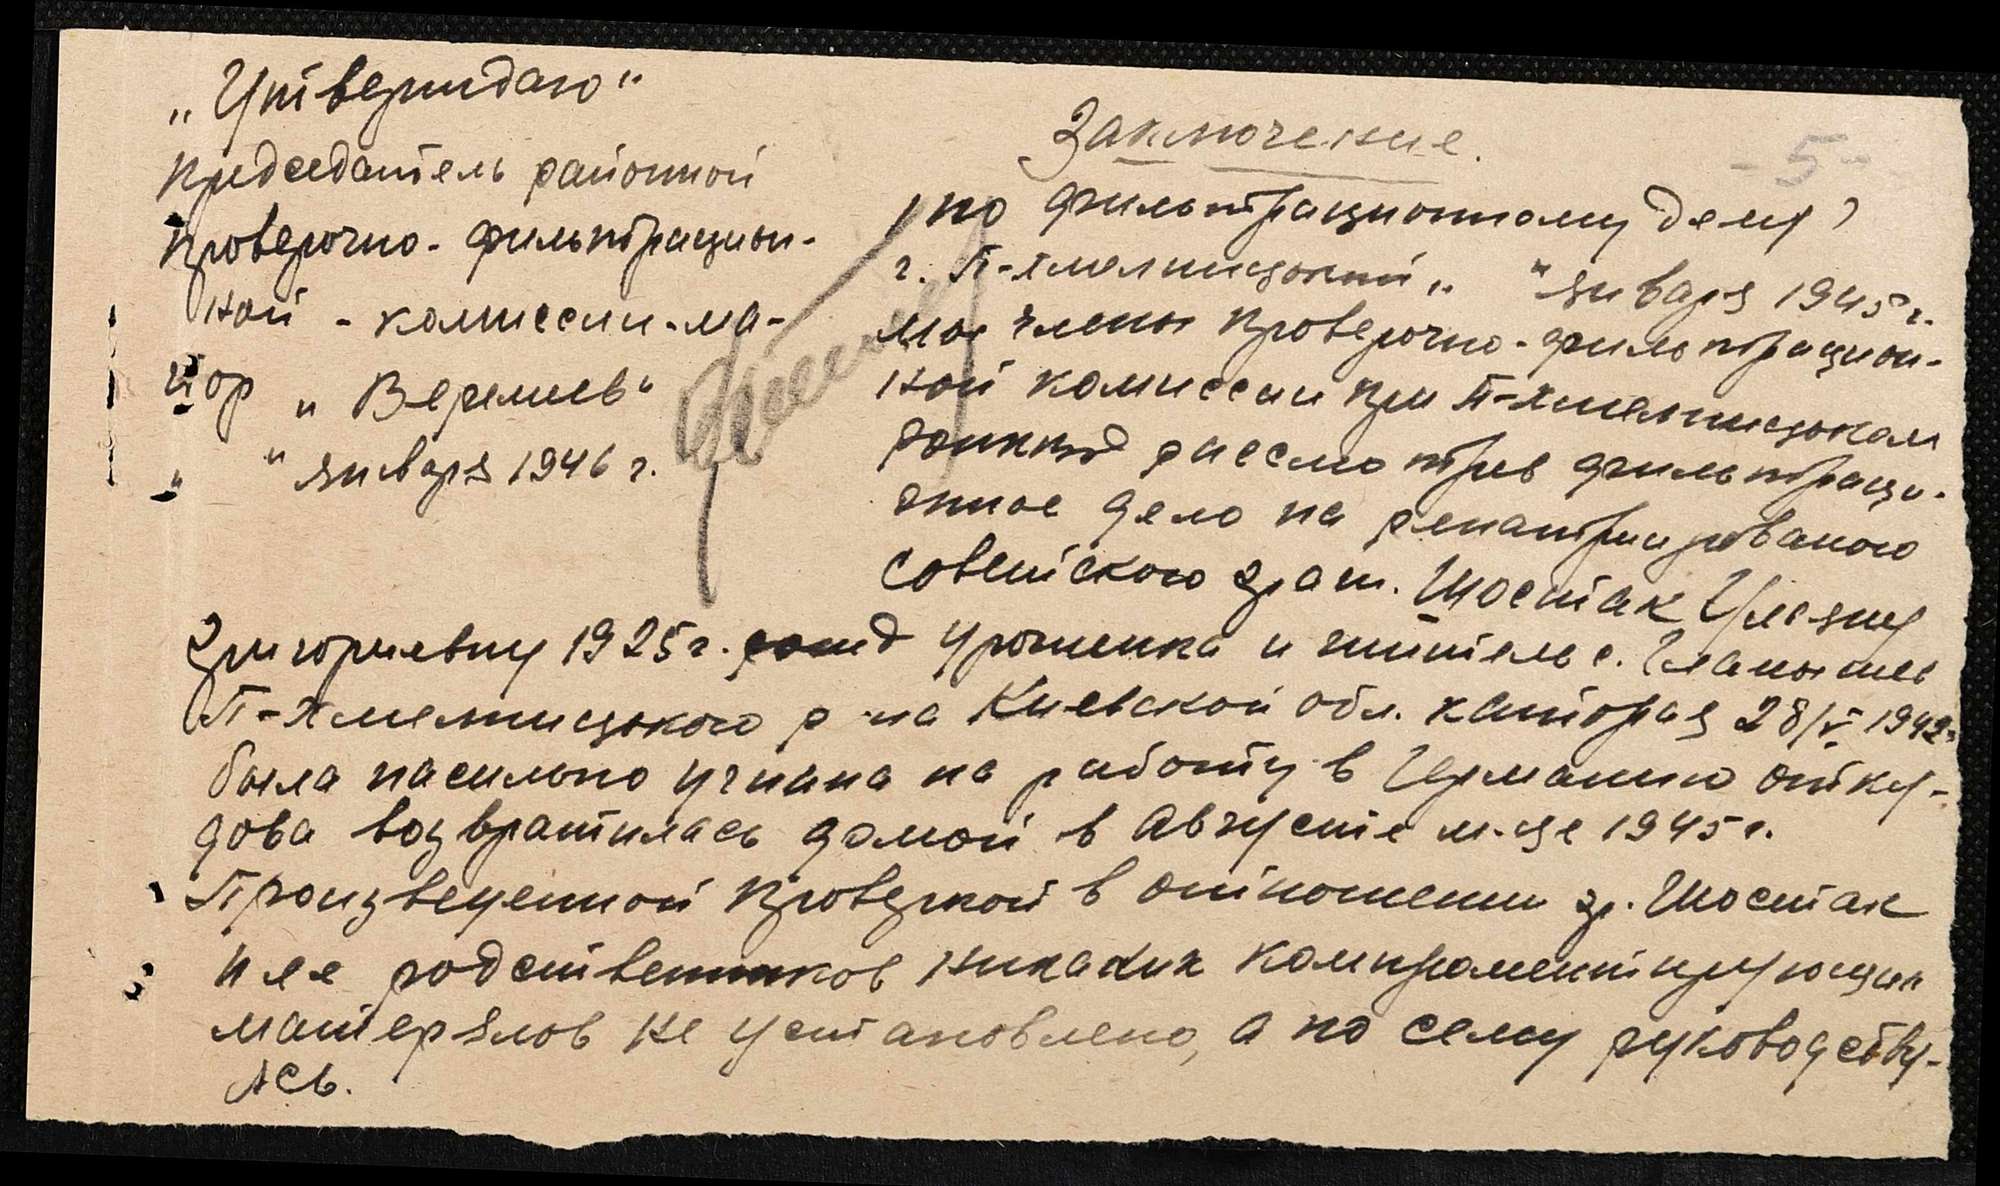 „Утверждаю“
Председатель районной
проверочно-фильтрацион-
ной - комиссии-ма-
иор „Веремиев“
„ “ января 1946 г.
Заключение.
- 5 -
/по фильтрационному делу/
г. П-Хмельницький „ “ января 1945 г.
Мы члены проверочно-фильтрацион-
ной комиссии при П-Хмельницьком
рассмотрев фильтраци-
онное дело на репатриированого
советского граж. Шостак
Григориевну 1925 г. рожд уроженка и житель с.
П-Хмельницького р-на Киевской обл. каторая 28/V 1942г.
была насильно угнана на работу в Германию отку-
дова возвратилась домой в Августе м-це 1945 г.
Произведенной проверкой в отношении гр. Шостак
и ее родственников никаких компрометирующих
матерялов не установлено, а по сему руководству-
ясь.